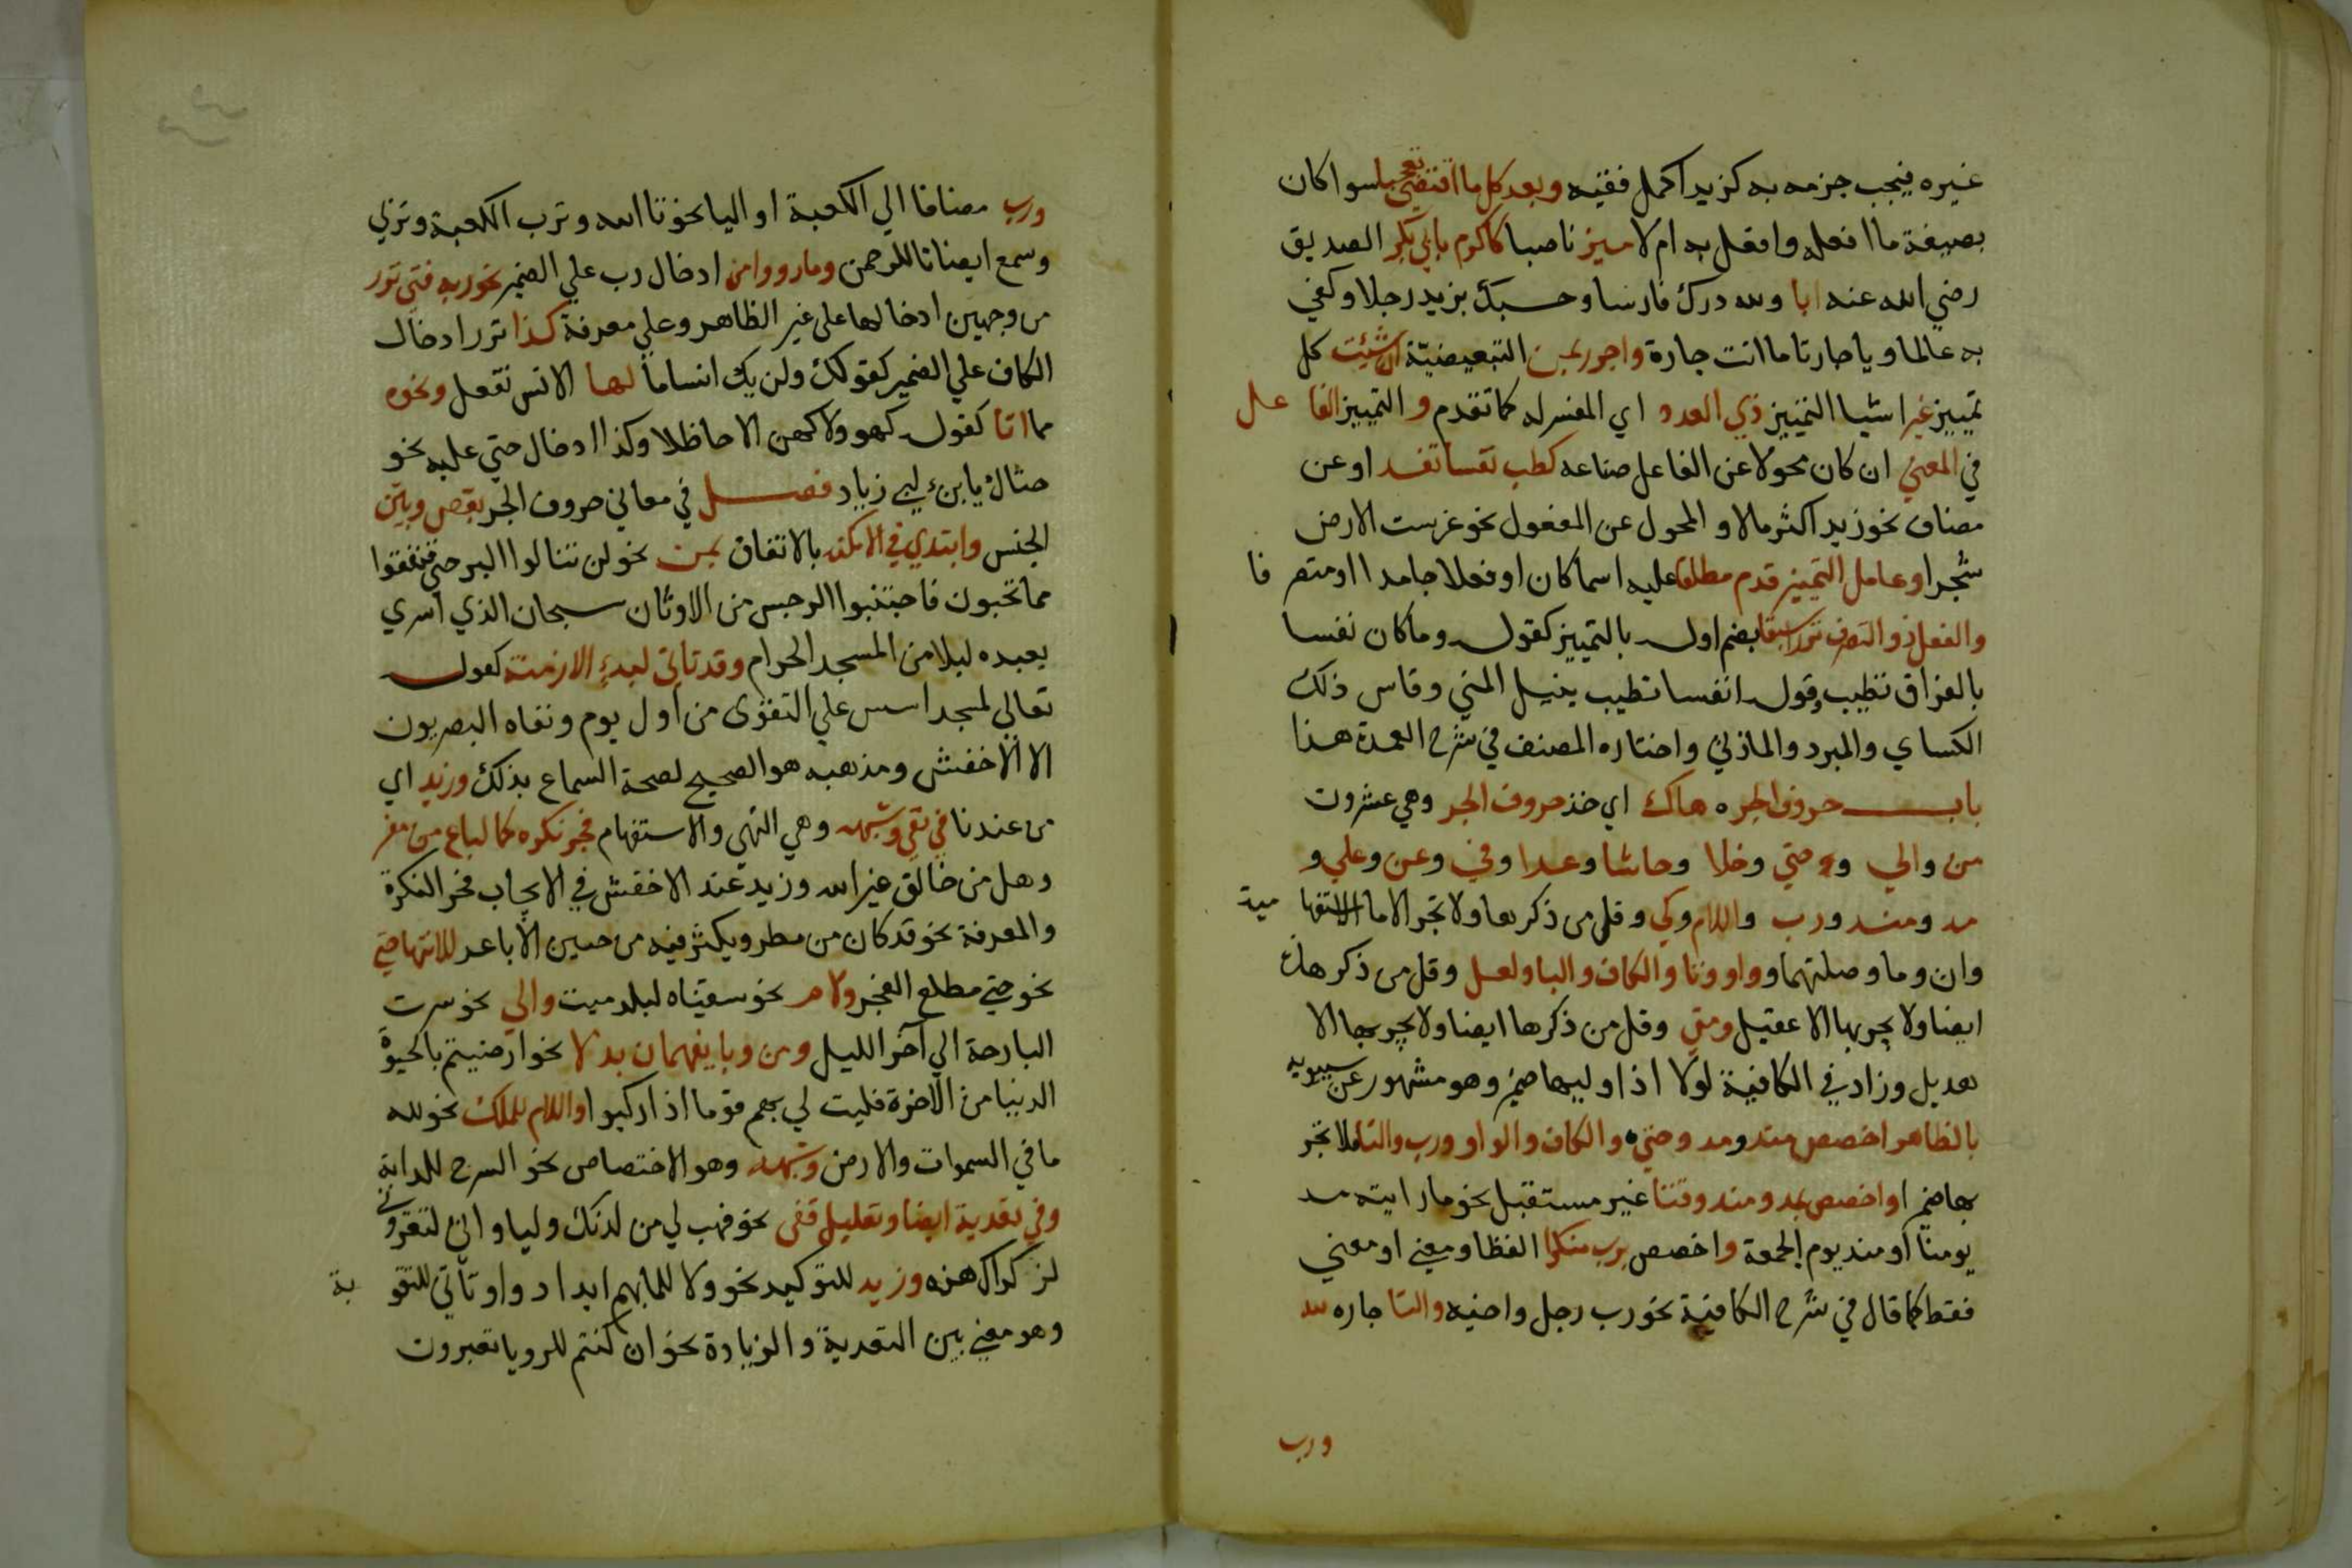 غيره فيجب جزمه به كزيد اكمل فقيه وبعد كل ما اقتضى تعجبا سوا كان
بصيغة ما افعله وافعل به ام لا ميز ناصبا كاكرم بابي بكر الصديق
رضي الله عنه ابا ولله درك فارسا وحسبك بزيد رجلا وكفي
به عالما ويا جارتا ما انت جارة واجرر بمن التبعيضيّة ان شئت كل
تمييز غير اشيا التمييز ذي العدد اي المفسر له كما تقدم و التمييز الفا عل
في المعني ان كان محولا عن الفاعل صناعه كطب نفسا تفد او عن
مضاف نحو زيد اكثر مالا و المحول عن المفعول نحو غرست الارض
شجرا وعامل التمييز قدم مطلقا عليه اسما كان او فعلا جامدا او متصر فا
والفعل ذو التصرف نزرا سبقا بضم اوله بالتمييز كقوله وما كان نفسا
بالفراق تطيب وقوله انفسا تطيب بنيل المني وقاس ذلك
الكساي والمبرد والمازني واختاره المصنف في شرح العمدة هذا
باب حروف الجر ه هاك اي خذ حروف الجر وهي عشرون
من والي و حتي وخلا وحاشا وعدا وفي وعن وعلي و
مذ ومنذ ورب واللام وكي وقل من ذكرها ولا تجر الا ما الاستفها مية
وان وما وصلتهما و واو وتا والكاف والبا ولعل وقل من ذكرها
ايضا ولا يجر بها الا عقيل ومتي وقل من ذكرها ايضا ولا يجر بها الا
هذيل وزاد في الكافية لولا اذا وليها ضمير وهو مشهور عن سيبويه
بالظاهر اخصص منذ ومذ وحتي ه والكاف والواو ورب والتا فلا تجر
بها ضميرا واخصص بمذ ومنذ وقتا غير مستقبل نحو ما رايته مذ
يومنا او منذ يوم الجمعة واخصص برب منكرا لفظا ومعني او معني
فقط كما قال في شرح الكافية نحو رب رجل واخيه والتا جاره لله
ورب
ورب مضافا الي الكعبة او اليا نحو تا الله وترب الكعبة وتربي
وسمع ايضا تا للرحمن وما رووا من ادخال رب علي الضمير نحو ربه فتي نزر
من وجهين ادخالها علي غير الظاهر وعلي معرفة كذا نزر ادخال
الكاف علي الضمير كقولك ولن يك انسا ما لها الانس تفعل ونحوه
مما اتا كقوله كهو ولا كهن الا حاظلا وكذا ادخال حتي عليه نحو
حتاك يا بن ابي زياد فصل في معاني حروف الجر بعض وبين
الجنس وابتدي في الامكنه بالاتفاق بمن نحو لن تنالوا البر حتي تنفقوا
مما تحبون فاجتنبوا الرجس من الاوثان سبحان الذي اسري
بعبده ليلا من المسجد الحرام وقد تاتي لبدء الازمنة كقوله
تعالي لمسجد اسس علي التقوى من اول يوم ونفاه البصريون
الا الاخفش ومذهبه هو الصحيح لصحة السماع بذلك وزيد اي
من عندنا في نفي وشبهه وهي النهي والاستفهام فجر نكره كما لباغ من مفر
وهل من خالق غير الله وزيد عند الاخفش في الايجاب فجر النكرة
والمعرفة نحو قد كان من مطر ويكثر فيه من حنين الا باعر للانتها حتي
نحو حتي مطلع الفجر ولام نحو سقيناه لبلد ميت والي نحو سرت
البارحة الي آخر الليل ومن وبا يفهمان بدلا نحو ارضيتم بالحيوة
الدنيا من الاخرة فليت لي بهم قوما اذا ركبوا واللام للملك نحو لله
ما في السموات والارض وشبهه وهو الاختصاص نحو السرج للدابة
وفي تعدية ايضا وتعليل قفى نحو فهب لي من لدنك وليا واني لتعروني
لذكراك هزه وزيد للتوكيد نحو ولا للما بهم ابدا دوا وتاتي للتقو ية
وهو معني بين التعدية والزيادة نحو ان كنتم للرويا تعبرون